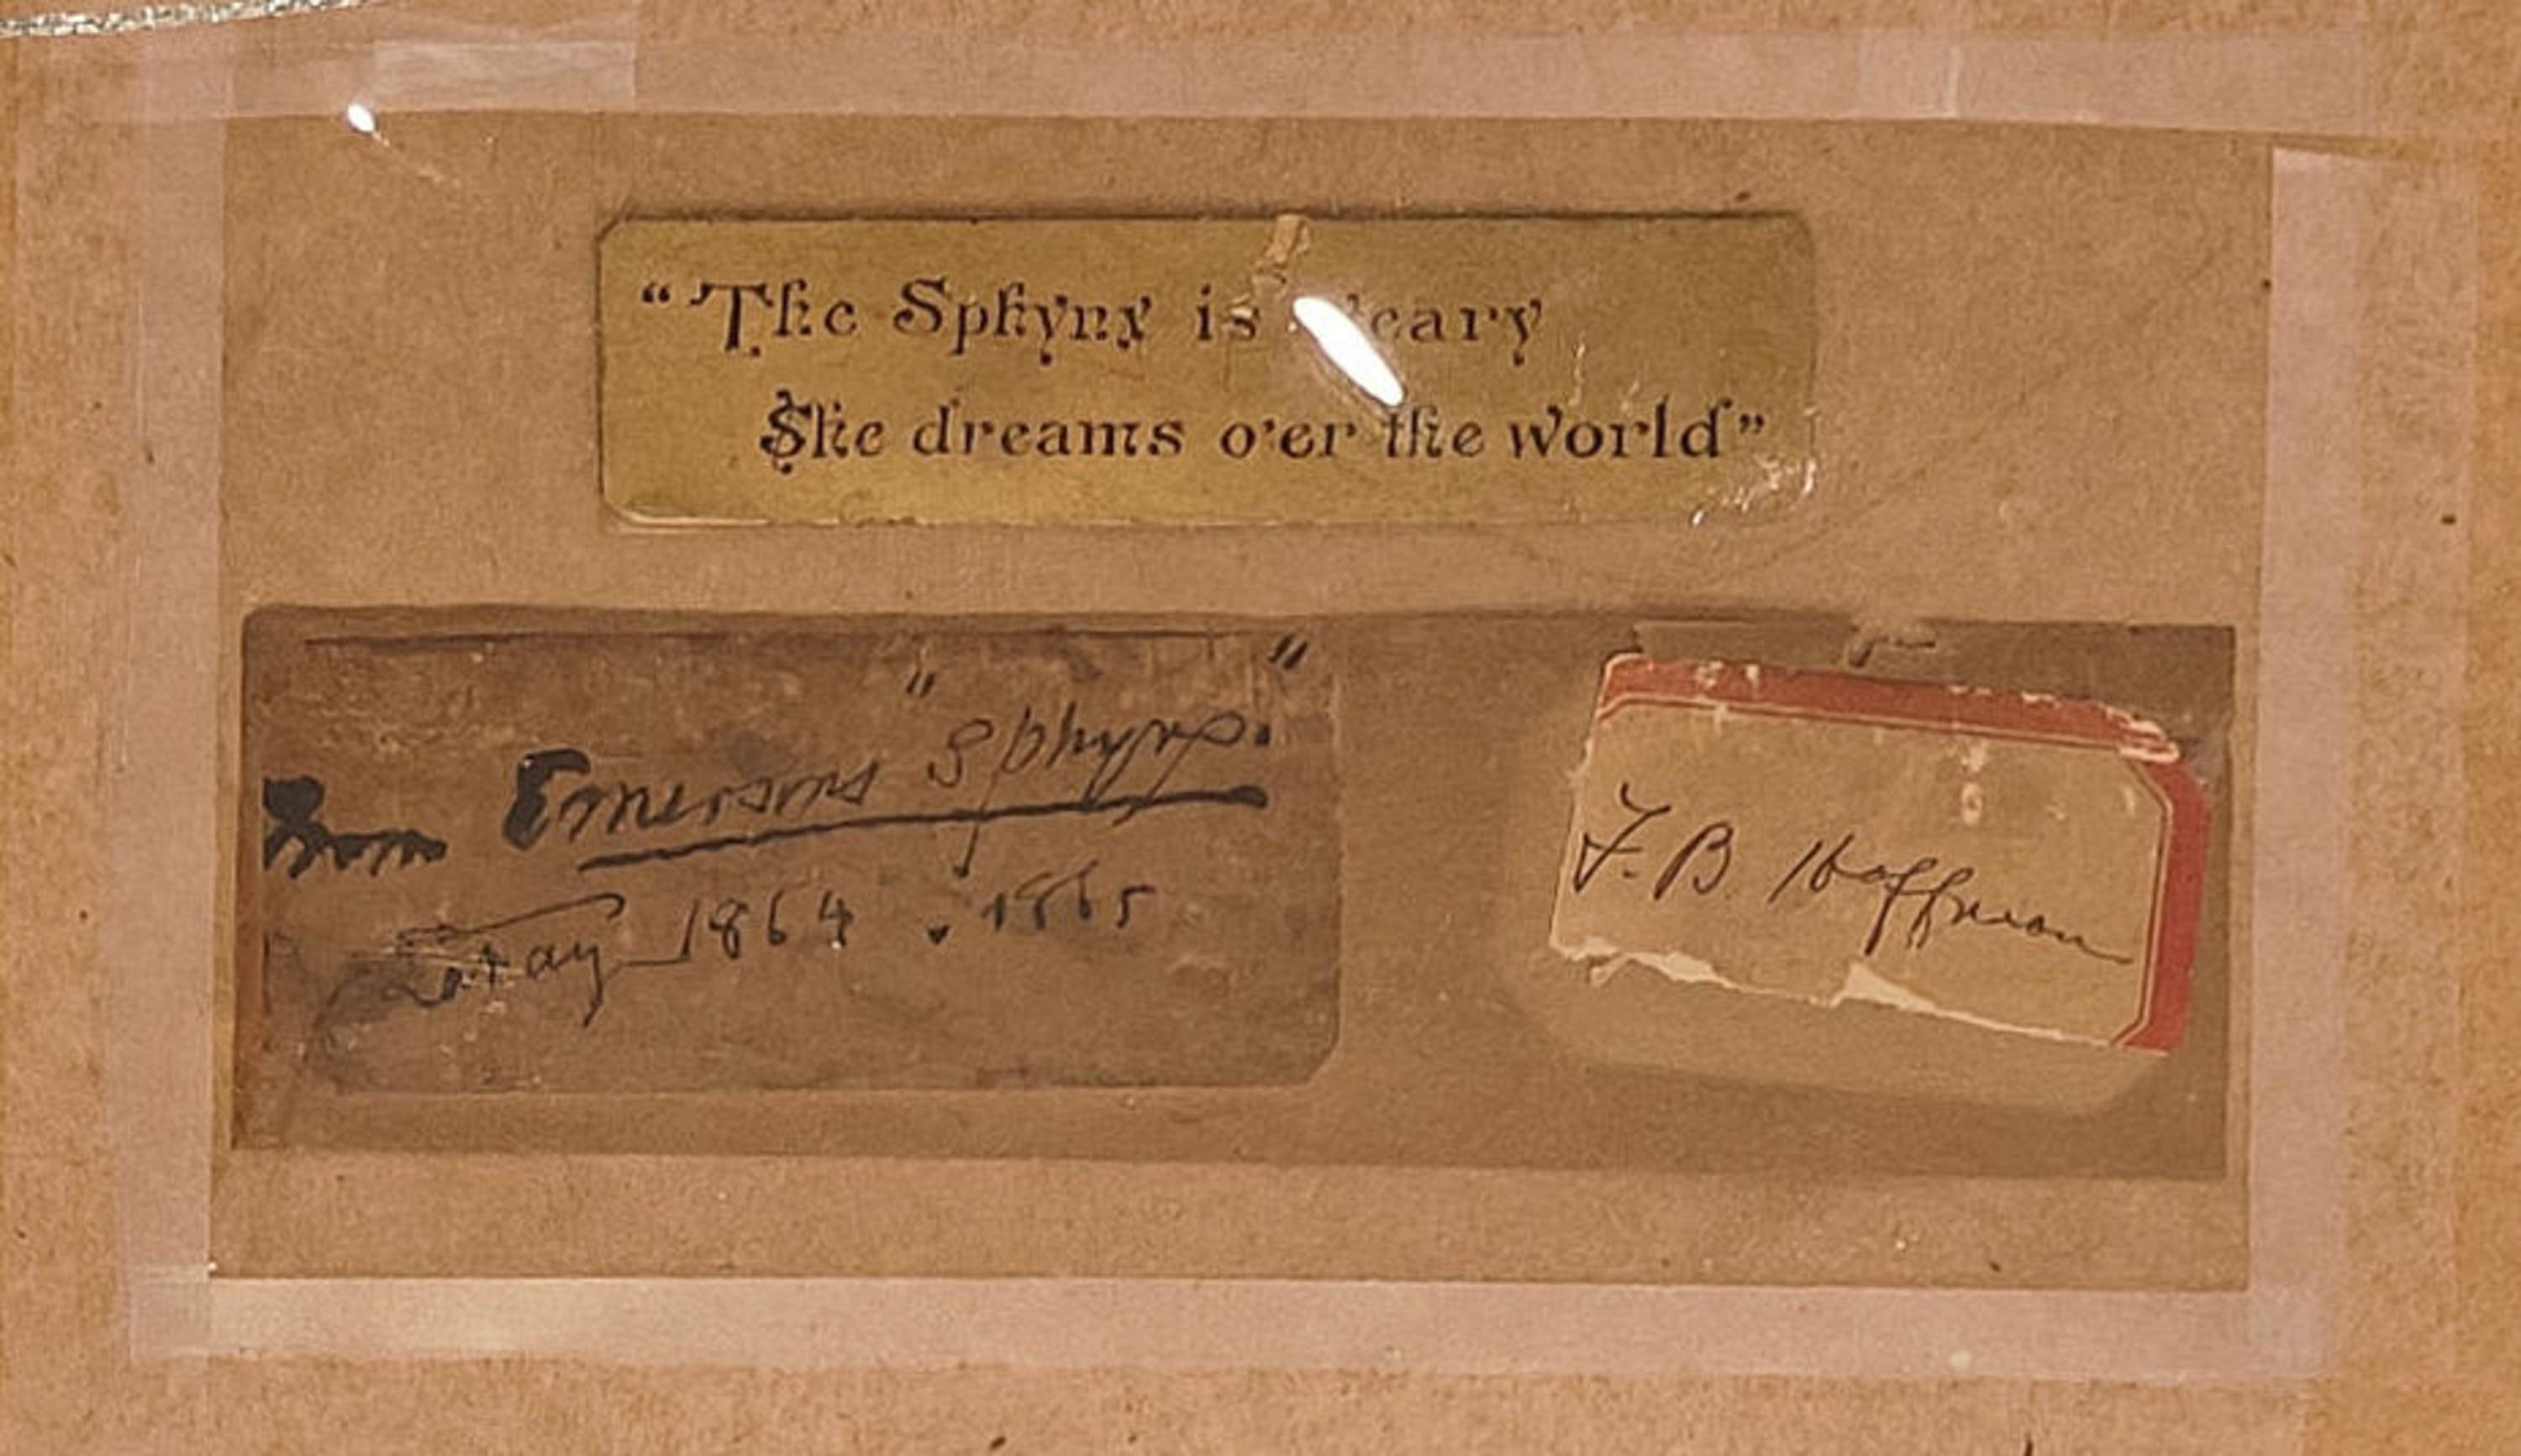 “The Sphynx is
She dreams o'er the world”
From Emersons "Sphynx."
1864 . 1865
F. B. Hoffman